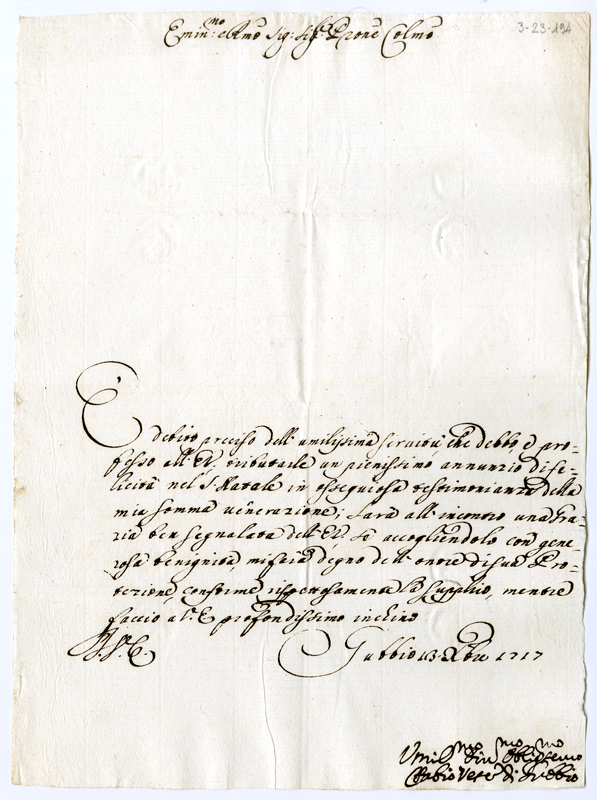 3-23-194
Emin:mo e Rmo Sig: Sig:r Prone Colmo
È debito preciso dell' umilissima servitù, che debbo, e pro-
fesso all' E.V. tributarle un pienissimo annunzio di fe-
licità nel S. Natale in ossequiosa testimonianza della
mia somma venerazione; Sarà all' incontro una Gra-
zia ben segnalata dell' E.V. se accogliendolo con gene-
rosa benignità, mi farà degno dell' onore di sua Pro-
tezione, conforme rispettosamente la supplico, mentre
faccio a V. E. profondissimo inchino
Gubbio 13 Xbre 1717
Umilmo Divmo Obligmo Servo
Fabio Vesc. di Gubbio